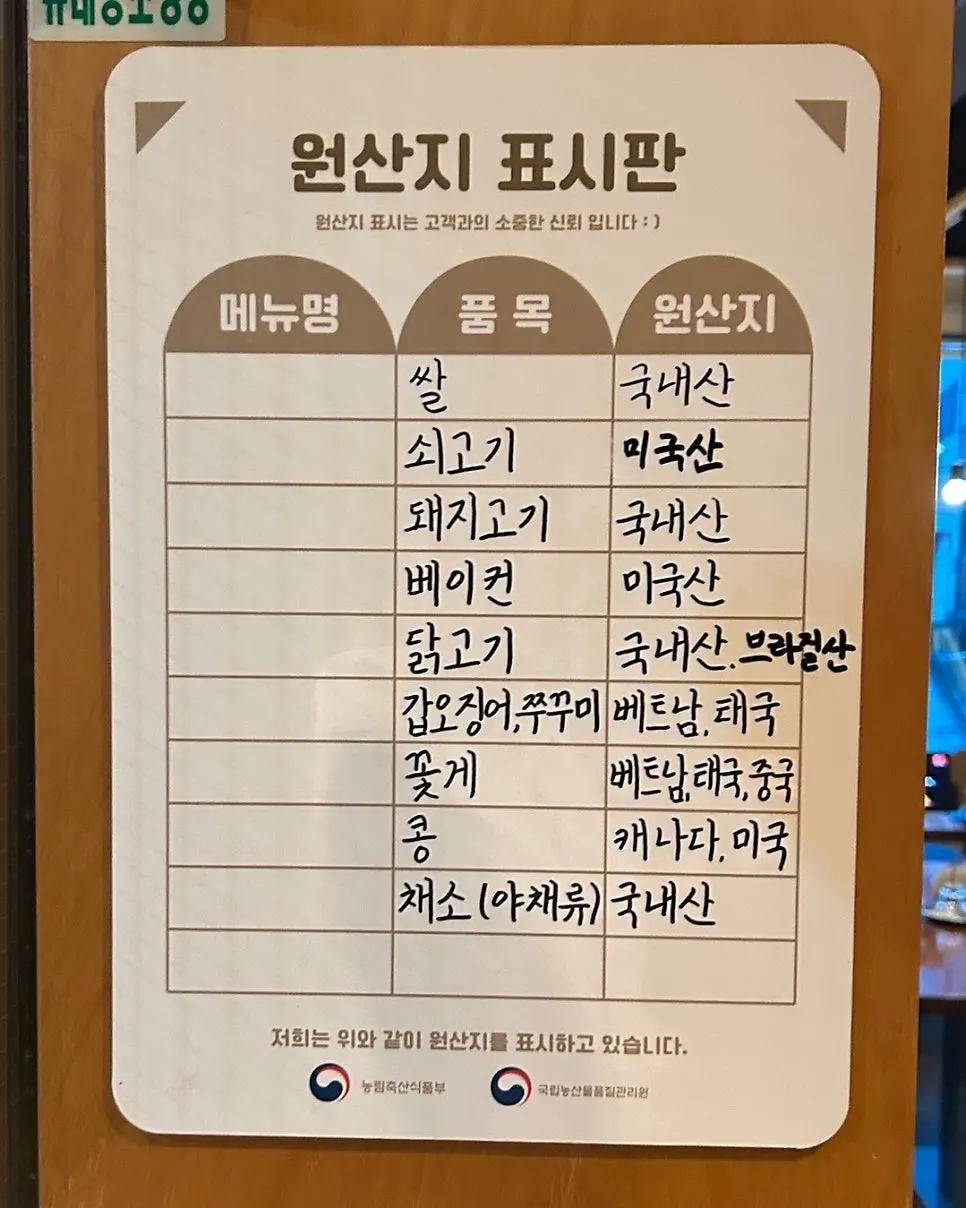 원산지 표시판
원산지 표시는 고객과의 소중한 신뢰 입니다 : )
메뉴명 품 목 원산지
쌀 국내산
쇠고기 미국산
돼지고기 국내산
베이컨 미국산
닭고기 국내산. 브라질산
갑오징어,쭈꾸미 베트남, 태국
꽃게 베트남,태국,중국
콩 캐나다, 미국
채소 (야채류) 국내산
저희는 위와 같이 원산지를 표시하고 있습니다.
농림축산식품부 국립농산물품질관리원